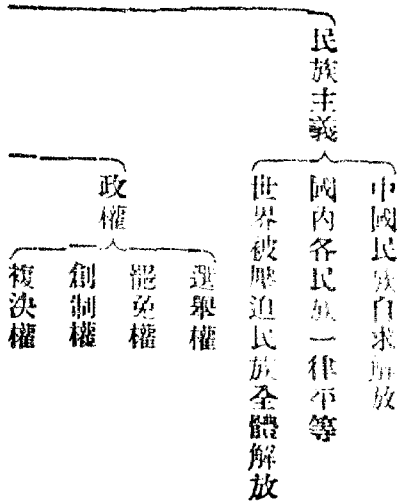 民族主義
中國民族自求解放
國內各民族一律平等
世界被壓迫民族全體解放
政權
選舉權
罷免權
創制權
複決權